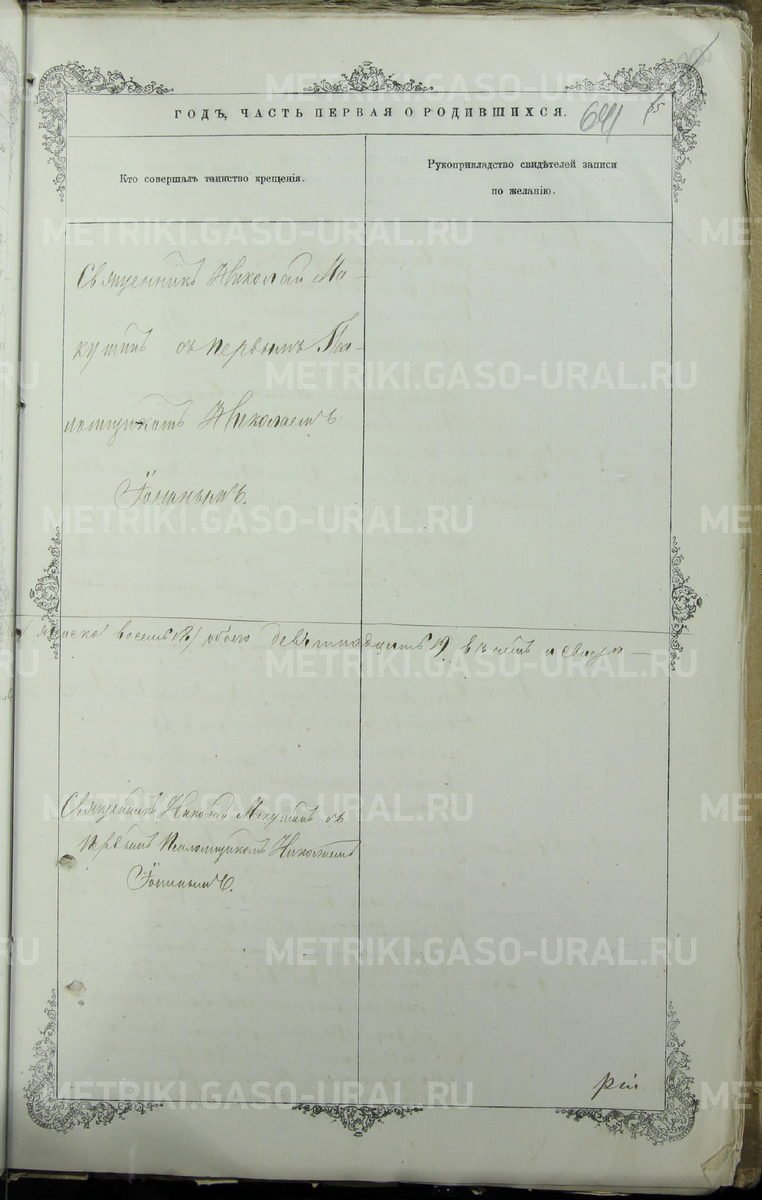 ГОДЪ, ЧАСТЬ ПЕРВАЯ О РОДИВШИХСЯ.
641
Кто совершалъ таинство крещенія.
Рукоприкладство свидѣтелей записи
по желанію.
Священникъ Николай Ма-
кушинъ съ первымъ Пса-
ломщикомъ Николаемъ
восемь (8) обоего девятнадцать 19
Священникъ Николай Макушинъ съ
Первымъ Псаломщикомъ Николаемъ
METRIKI.GASO-URAL.RU